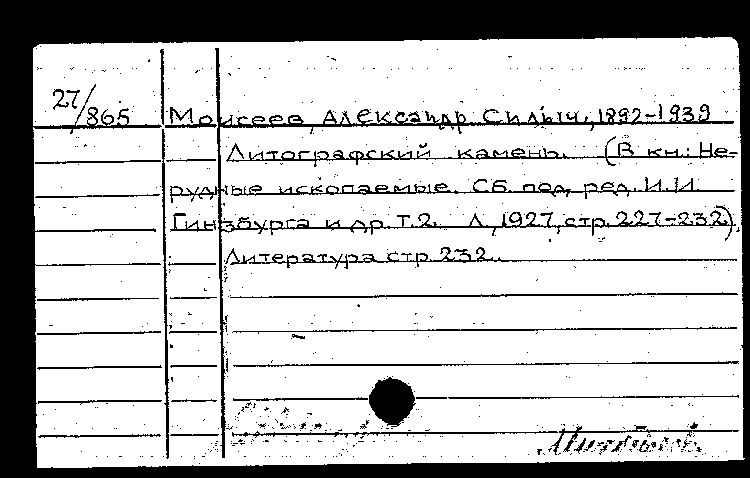 27/865 Моисеев, Александр Силыч, 1892-1939
Литографский камень. (В кн.: Не-
рудные ископаемые. Сб. под ред. И.И.
Гинзбурга и др. Т.2. Л., 1927, стр. 227-232).
Литература стр. 232.